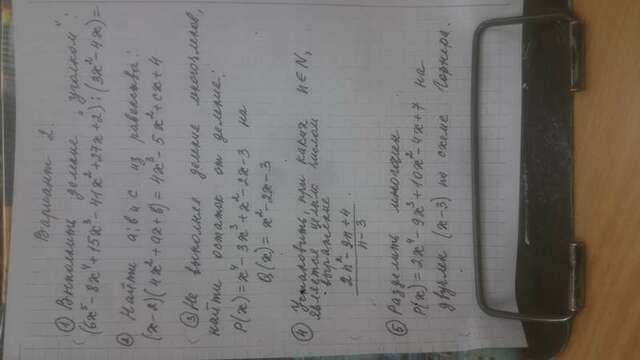 Вариант 2.
① Выполнить деление "уголком":
(6x⁵-8x⁴+15x³-41x²+27x+2):(3x²-4x)=
② Найти a; b и c из равенства:
(x-2)(4x²+ax+b)=4x³-5x²+cx+4
③ Не выполняя деление многочленов,
найти остаток от деления:
P(x)=x⁴-3x³+x²-2x-3 на
Q(x)=x²-2x-3
④ Установить, при каких n∈N,
является целым числом
выражение
2n²-9n+4
n-3
⑤ Разделить многочлен
P(x)=2x⁴-9x³+10x²-4x+7 на
двучлен (x-3) по схеме Горнера.